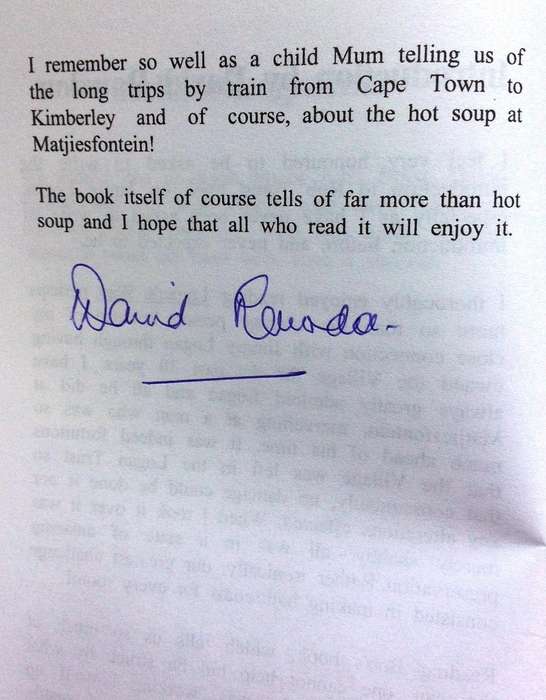 I remember so well as a child Mum telling us of
the long trips by train from Cape Town to
Kimberley and of course, about the hot soup at
Matjiesfontein!
The book itself of course tells of far more than hot
soup and I hope that all who read it will enjoy it.
David Rawdon